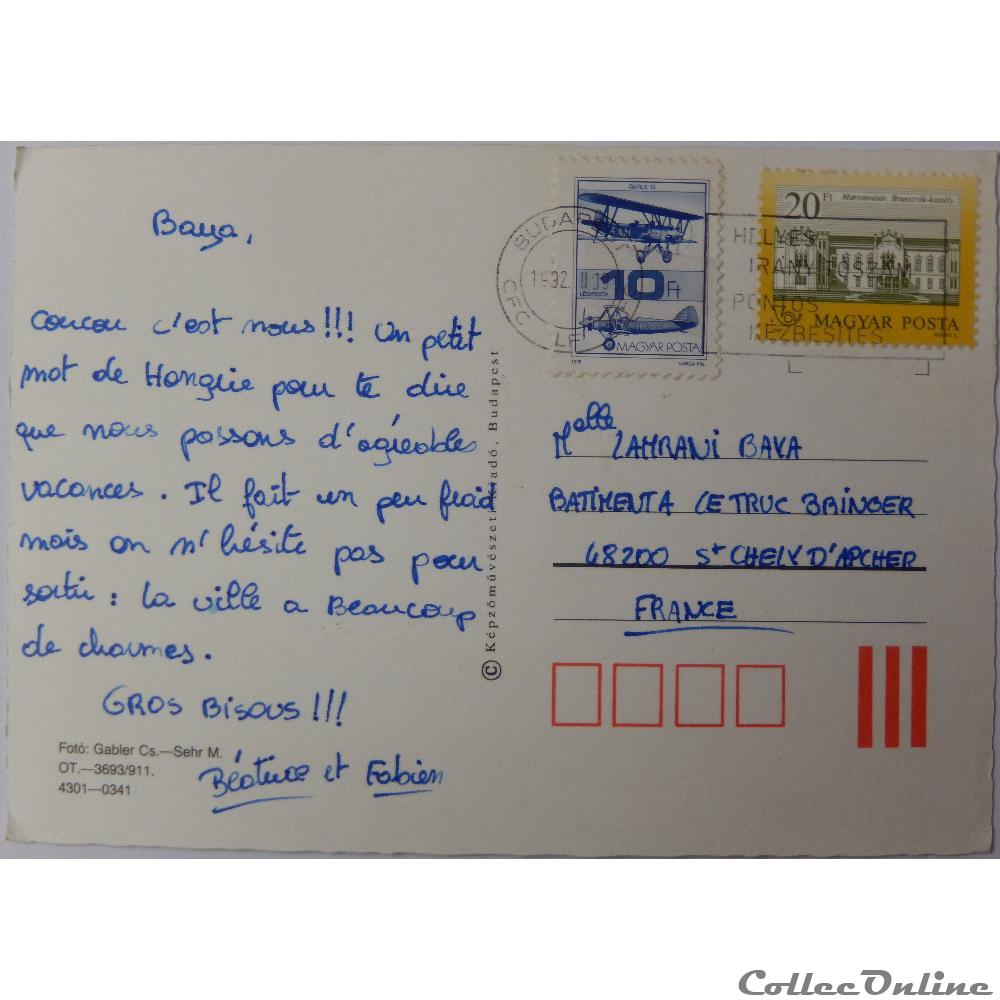 Baya,
coucou c'est nous!!! Un petit
mot de Hongrie pour te dire
que nous passons d'agréables
vacances. Il fait un peu froid
mais on n'hésite pas pour
sortir : la ville a Beaucoup
de charmes.
GROS BISOUS!!!
Béatrice et Fabien
Fotó: Gabler Cs.—Sehr M.
OT.—3693/911.
4301—0341
© Képzőművészeti Kiadó, Budapest
GERLE 13
10 Ft
LÉGIPOSTA
MAGYAR POSTA
VARGA PÁL
20 Ft Martonvásár, Brunszvik-kastély
MAGYAR POSTA
BUDAP
CFC
HELYES
IRÁNYÍTÓSZÁM
PONTOS
KÉZBESÍTÉS
Melle ZAHRANI BAYA
BATIMENT A LE TRUC BRINGER
48200 St CHELY D'APCHER
FRANCE
CollecOnline